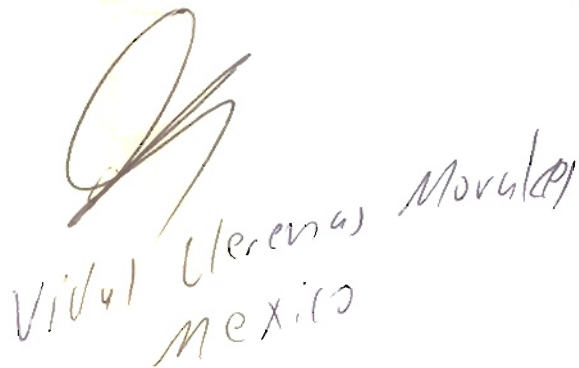 Vidal Llerenas Morales
Mexico